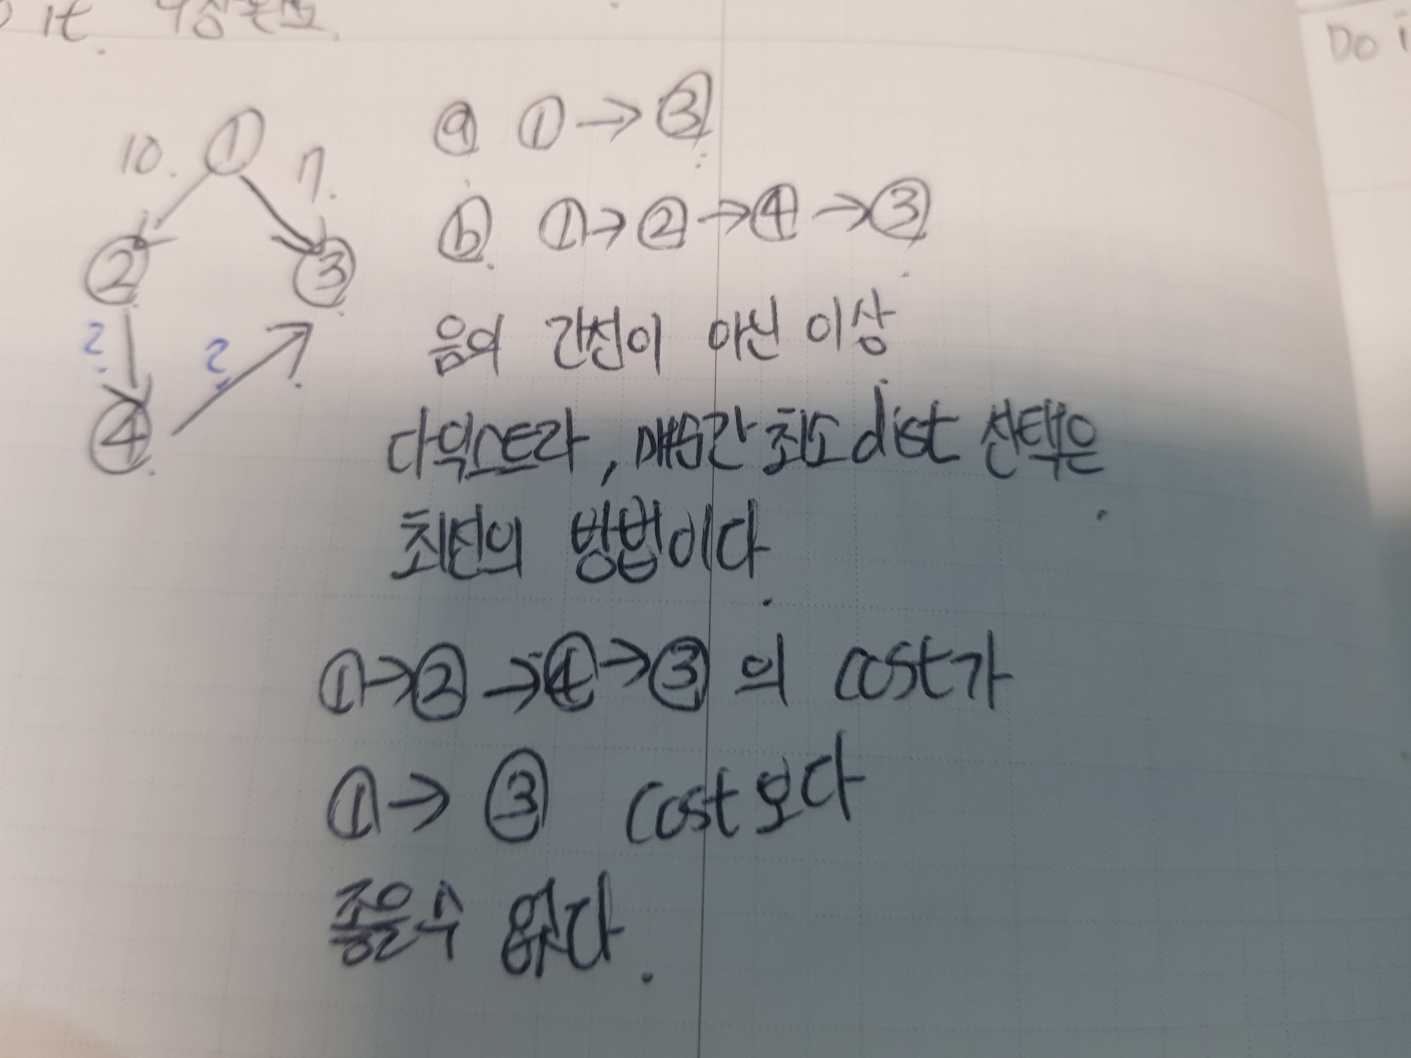 it.
Do i
ⓐ ① → ③
10. ① 7.
ⓑ ① → ② → ④ → ③
② ③
음의 간선이 아닌 이상
? ?
④
다익스트라, 매순간 최소 dist 선택은
최선의 방법이다.
① → ② → ④ → ③ 의 cost가
① → ③ cost보다
좋을수 없다.